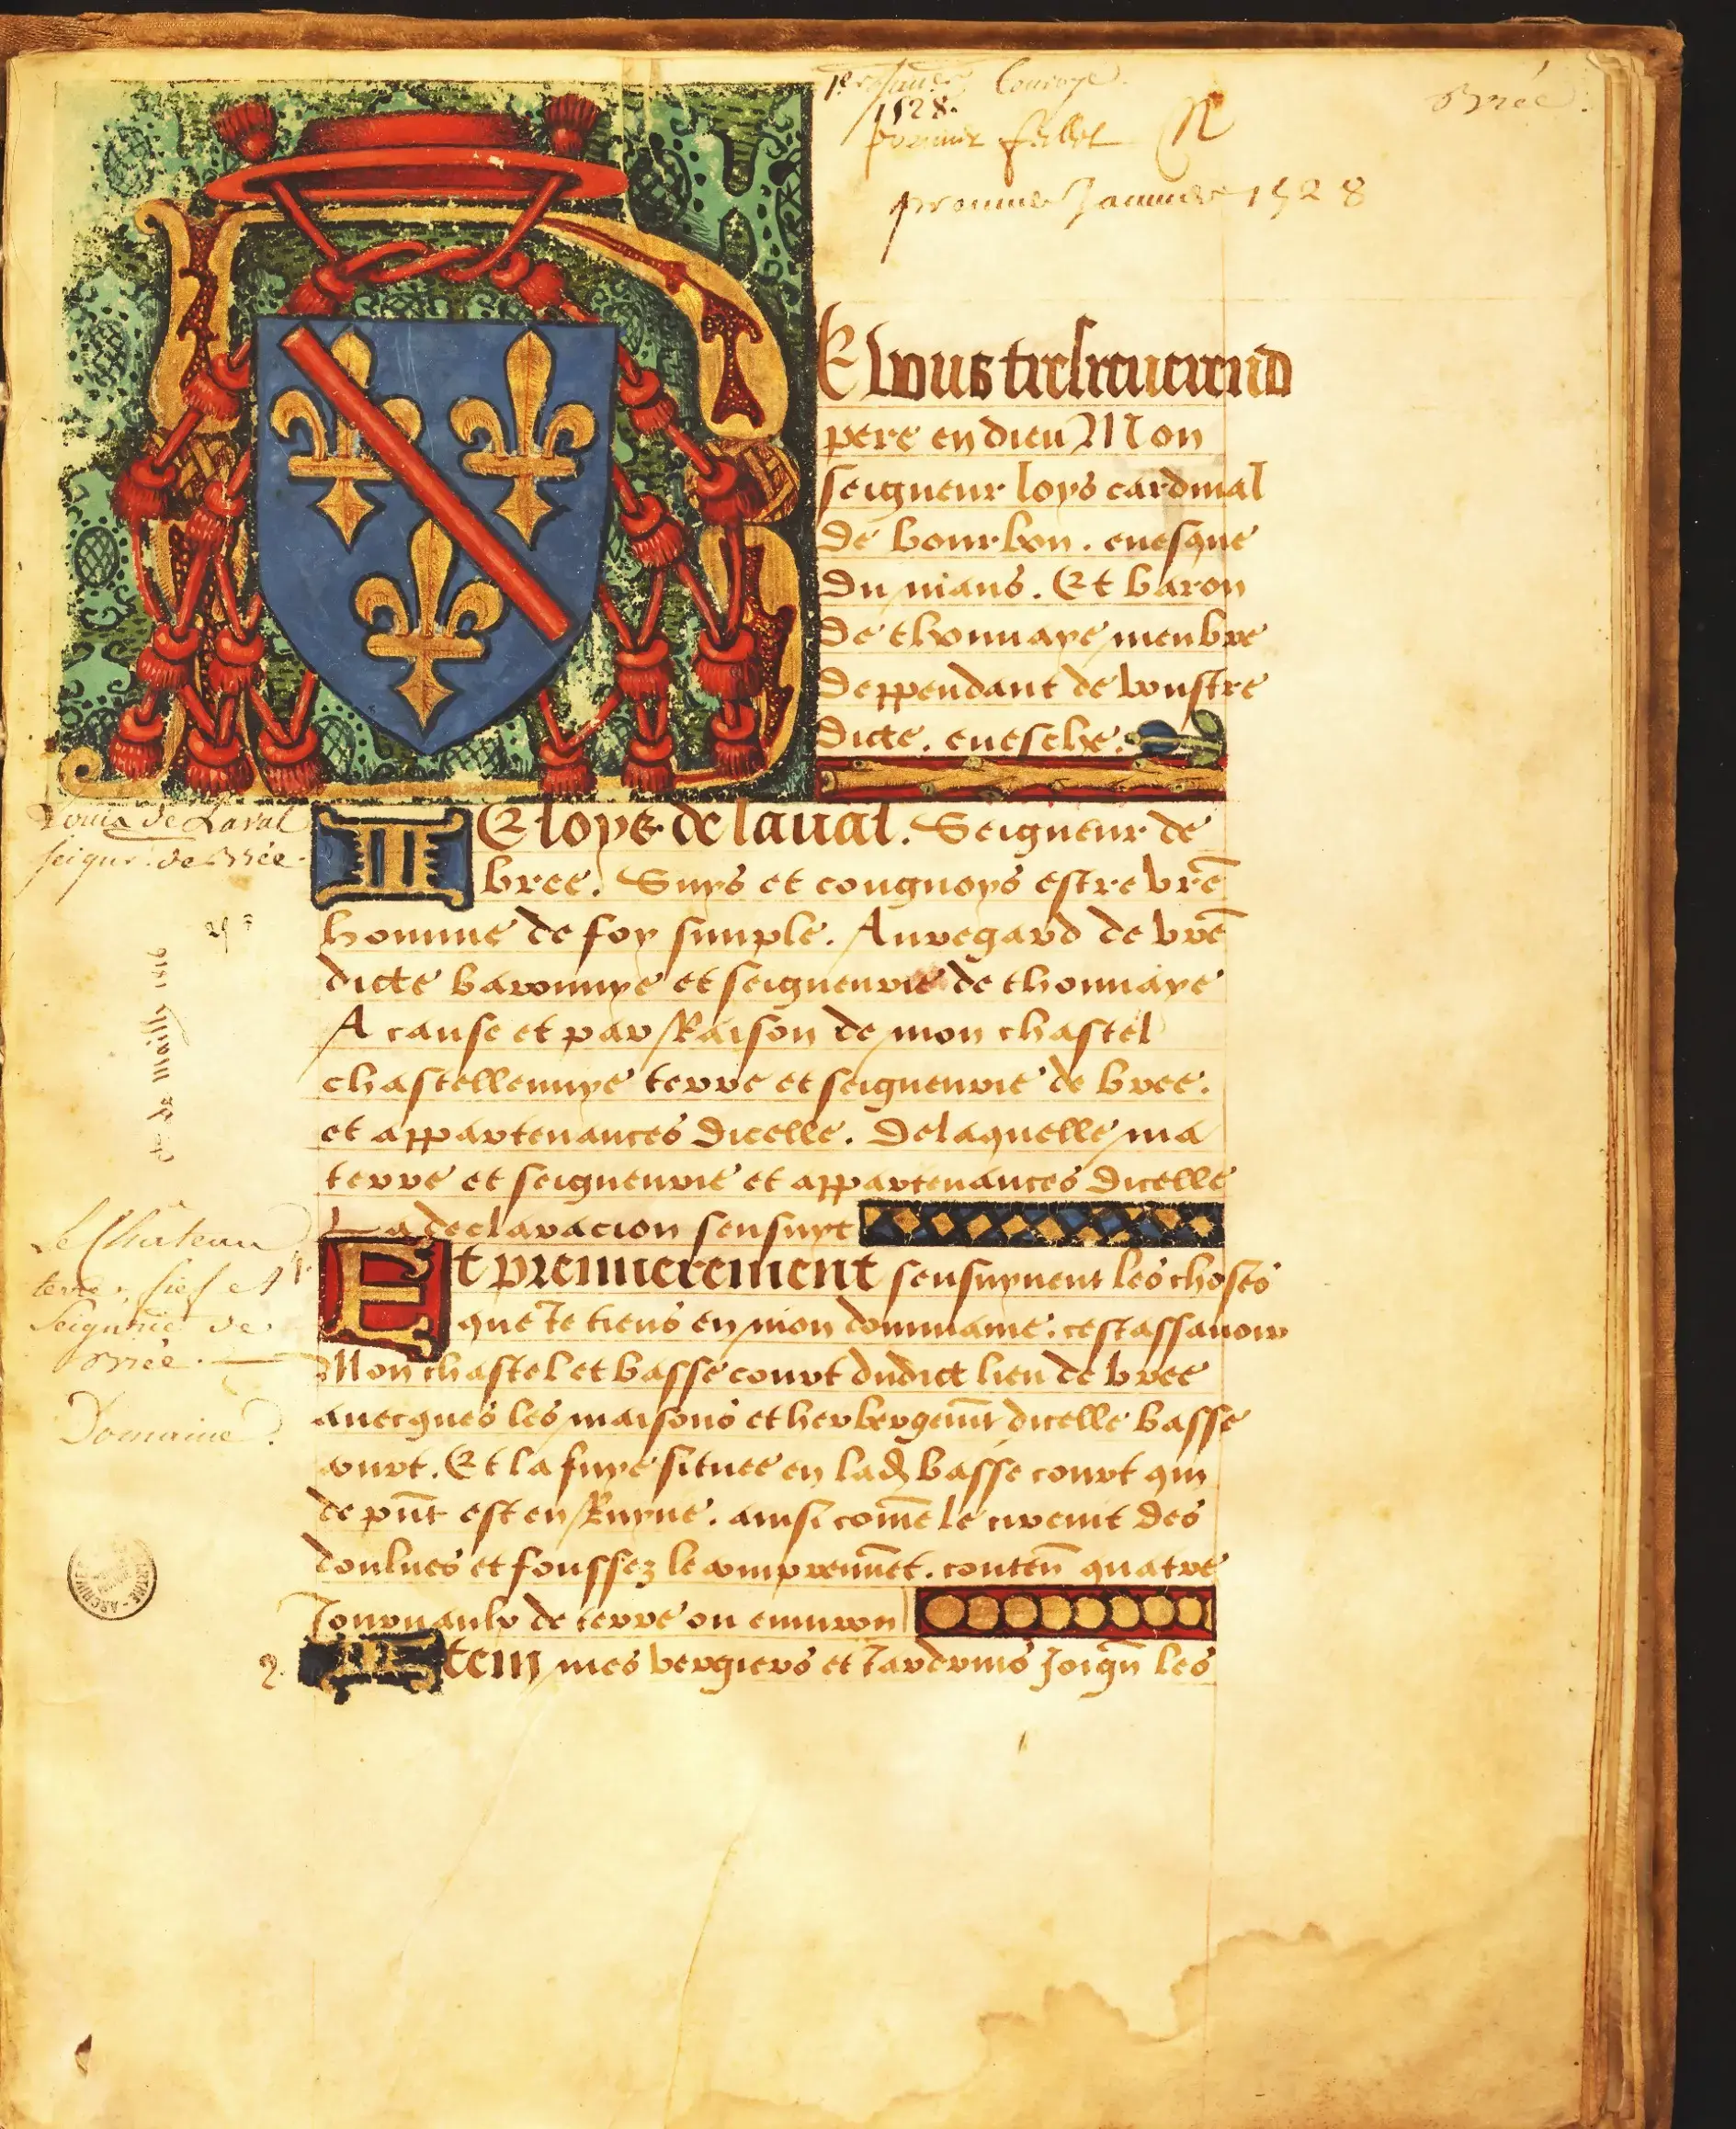 1528.
Brée.
premier Janvier 1528
De vous tresreuerend
pere en dieu Mon
seigneur loys cardinal
de bourbon. euesque
du mans. Et baron
de thonnaye menbre
deppendant de voustre
dicte. euesche.
Louis de Laval
seigr. de Brée.
IE loys de laual. Seigneur de
bree. Suys et congnoys estre vrē
homme de foy simple. Au regard de vrē
dicte baronnye et seigneurie de thonnaye
A cause et par Raison de mon chastel
chastellennye terre et seigneurie de bree.
et appartenances dicelle. De laquelle ma
terre et seigneurie et appartenances dicelle
La declaracion sensuyt
Le Château
terre, fief et
Seignrie de
Brée.
Domaine.
Et premierement sensuyuent les choses
que Je tiens en mon dommaine. cest assauoir
Mon chastel et basse court dudict lieu de bree
auecques les maisons et herbergemt dicelle basse
court. Et la fuye situee en lad basse court qui
de pnt est en Ruyne. ainsi come le circuit des
doulues et foussez le comprennet. conten quatre
Journaulx de terre ou enuiron
2. Item mes vergiers et Jardrins Joign les